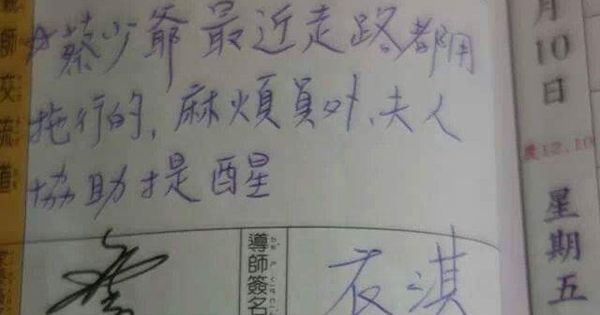 ☆蔡少爺最近走路都用
拖行的,麻煩員外、夫人
協助提醒
導師簽名
衣淇
月10日
農12.10
星期五
師交流道